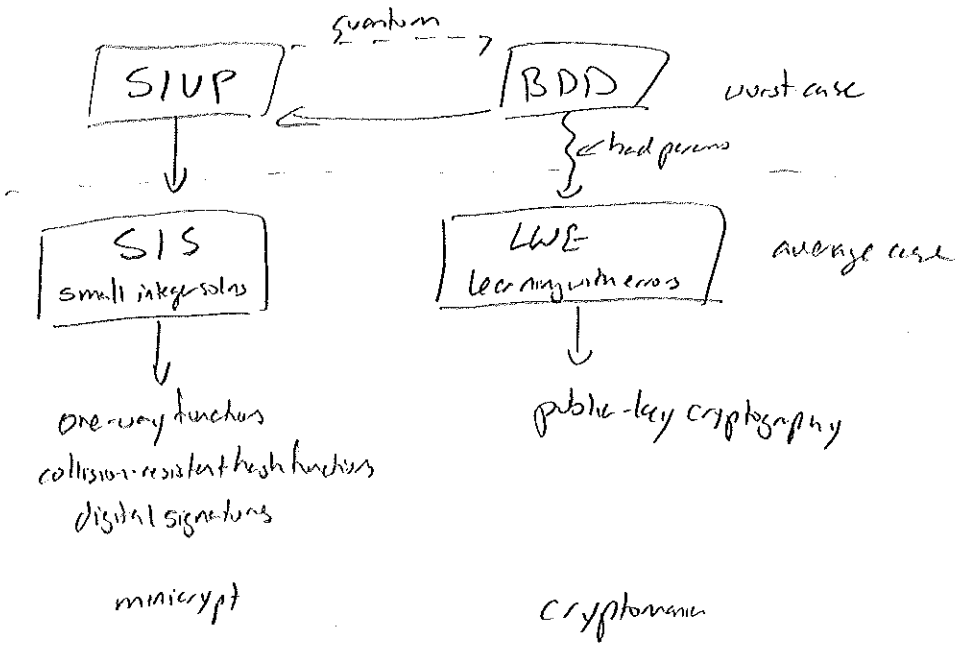 quantum
SIVP
BDD
worst case
bad params
SIS
small integer solns
LWE
learning with errors
average case
one-way functions
collision-resistant hash functions
digital signatures
public-key cryptography
minicrypt
cryptomania